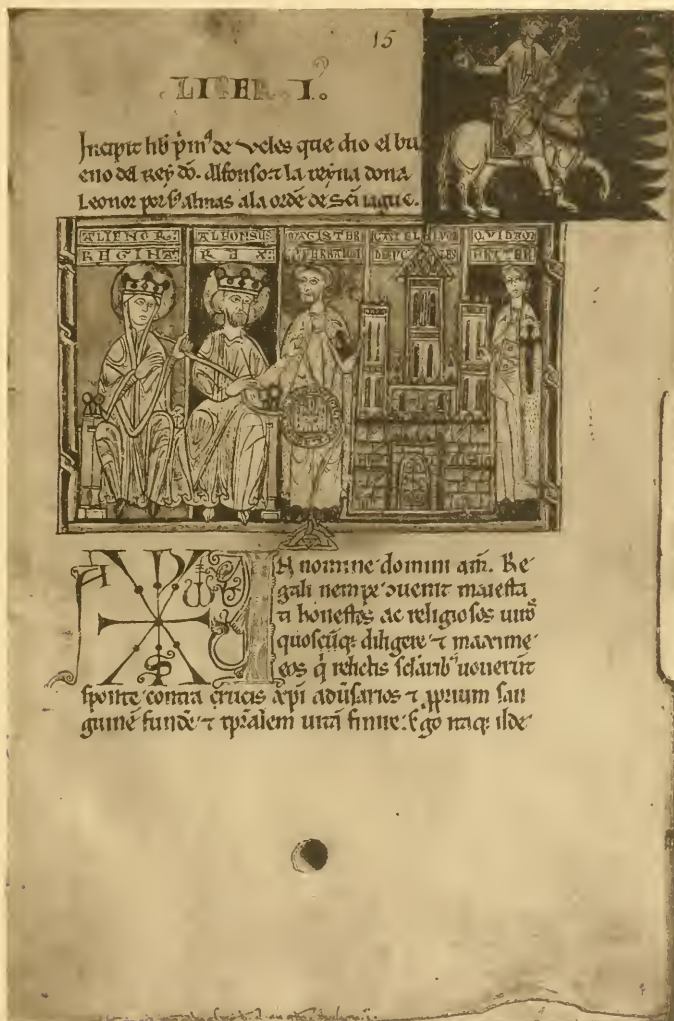 15
LIBER · I.
Incipit lib̄ p̄m⁹ de veles que dio el bu
eno del Rey dō. Alfonso ⁊ la reyna dona
Leonor por s⁹ almas ala ordē de sc̄i iague.
ALIENOR: ALFONSUS MAGISTER CASTELLUM
REGINA: REX: FERNANDI
IN nomine domini am̄. Re-
gali nempe ꝯuenit maiesta
ti honestos ac religiosos uiros
quoscūq; diligere ⁊ maxime
eos q̇ relictis sc̄larib⁹ uouerūt
sponte contra crucis xp̄i aduersarios ⁊ ꝓprium san
guinē fundē ⁊ tp̄alem uitā finire. Ego itaq; ilde-